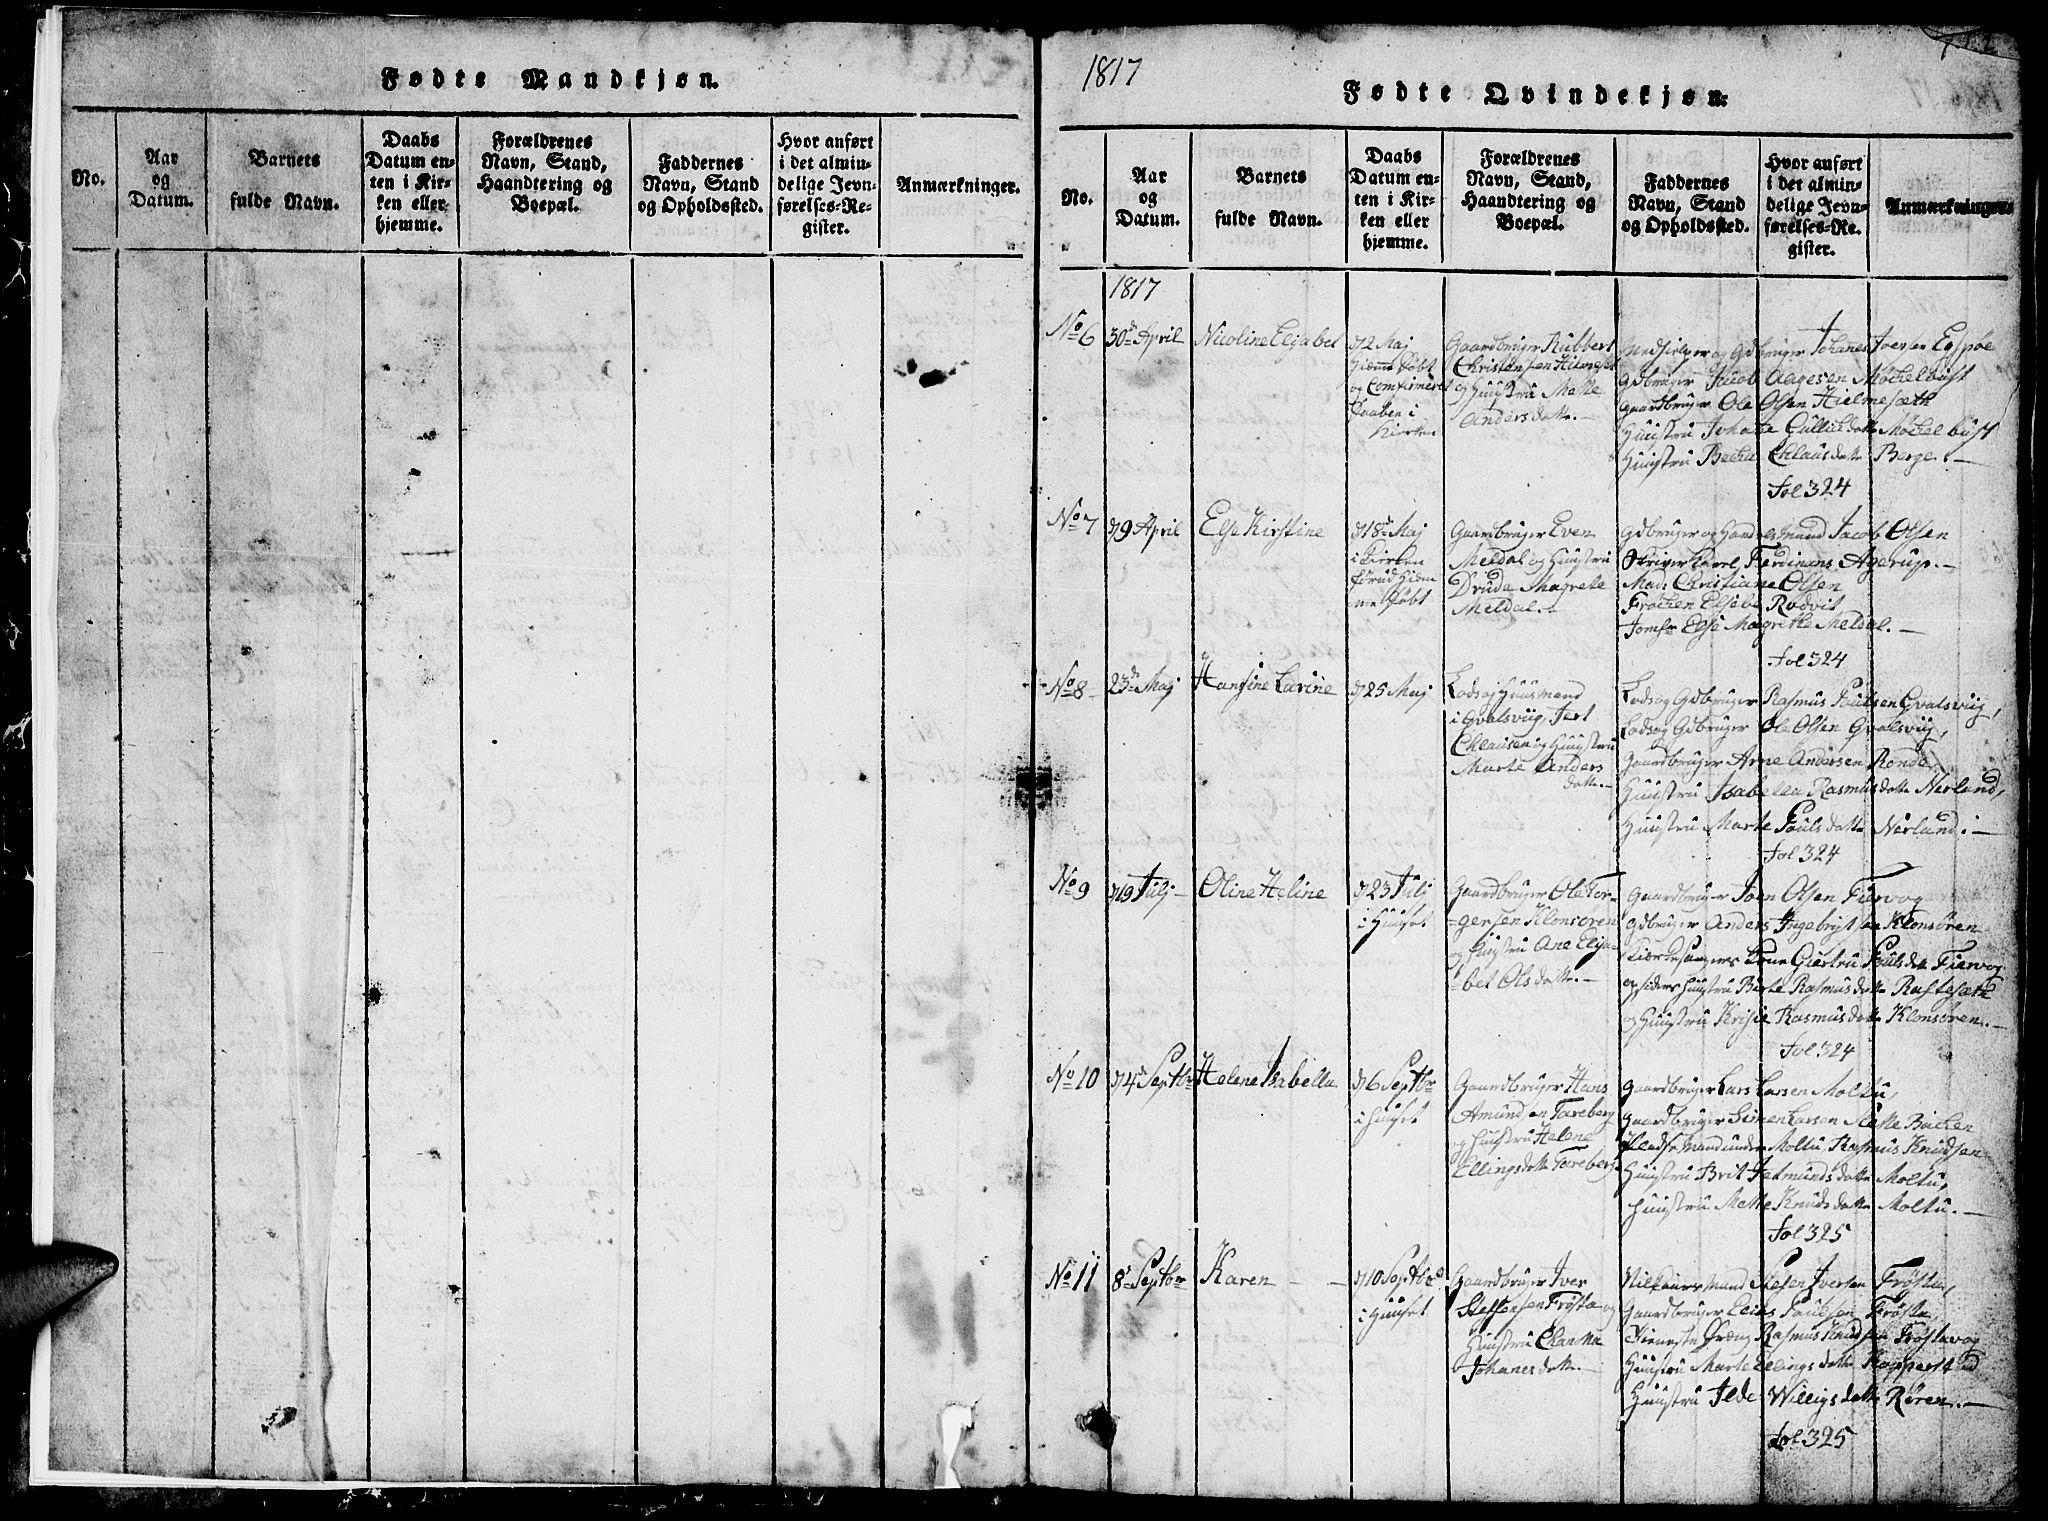 Fødte Mandkjøn.
No.
Aar
og
Datum.
Barnets
fulde Navn.
Daabs
Datum en-
ten i Kir-
ken eller
hjemme.
Forældrenes
Navn, Stand,
Haandtering og
Boepæl.
Faddernes
Navn, Stand
og Opholdssted.
Hvor anført
i det almin-
delige Jevn-
førelses-Re-
gister.
Anmærkninger.
1817
Fødte Qvindekjøn:
No.
Aar
og
Datum.
Barnets
fulde Navn.
Daabs
Datum en-
ten i Kir-
ken eller
hjemme.
Forældrenes
Navn, Stand,
Haandtering og
Boepæl.
Faddernes
Navn, Stand
og Opholdssted.
Hvor anført
i det almin-
delige Jevn-
førelses-Re-
gister.
Anmærkninger
1817
No 6
30d April
Nicoline Elisabet
12 Maj
Hiemme Døbt
og Confirmeret
Daaben i
Kirken
Gaardbruger Rubbert
Christensen Hilmeset
og Huustru Mette
Anders datte. –
Medhielper og Gdbruger Johanes Joensen Egspøe
Gdbruger Jacob Aagesen Møckelbust
Gaardbruger Ole Olsen Hielmesæth
Huustru Johane Gullicks datte Møckelbust
Huustru Claus datte Berge. –
Fol 324
No 7
9 April
Else Kirstine
18d Maj
i Kirken
forud Hiem
me Døbt
Gaardbruger Even
Meldal og Huustru
Drude Magrete
Meldal. –
Gdbruger og Handelsmand Jacob Olsen
Skriver Karl Ferdinans Agerup. –
Mad: Christiane Olsen
Frøcken Elsebe Rodvit
Jomfr Else Magrethe Meldal. –
Fol 324
No 8
23d Maj
Hansine Larine
25 Maj
Lods og Huusmand
i Qvalsviig, Jert
Clausen og Huustru
Marte Anders
datte. –
Lods og Gdbruger Rasmus Poulsen Qvalsviig,
Lods og Gdbruger Ole Olsen Qvalsviig,
Gaardbruger Arne Andersen Rønde,
Huustru Isabella Rasmusdatte Nerland,
Huustru Marte Pouls datte Nerland. –
Fol 324
No 9
19 Julj
Oline Heline
23 Julj
i Huuset
Gaardbruger Ole Tor-
gersen Klonsøren
og Huustru Ane Elisa-
bet Ols datte. –
Gaardbruger Joen Olsen Fiervog
Gdbruger Anders Ingebrigtsen Klonsøren
Kirkesangers Kone Giertru Pouls datte Fiervog
Huustru Berte Rasmus datte Raftesæth
og Huustru Krisie Rasmus datte Klonsøren. –
Fol 324
No 10
4d Septbr
Helene Isabella
6 Septbr
i Huuset
Gaardbruger Hans
Amundsen Tareberg
og Huustru Helene
Ellings datte Tareberg
Gaardbruger Lars Larsen Moltu,
Gaardbruger Simen Larsen Mette Backen
Pladsemand under Moltu, Rasmus Knudsen
Huustru Brit Jetmunds datte Moltu,
Huustru Mette Knuds datte Moltu. –
Fol 325
No 11
8d Septbr
Karen – –
10 Septbr
i Huuset
Gaardbruger Iver
Steffensen Frøstø og
Huustru
Johanes datte. –
Stefen Iversen Frøstø,
Gaardbruger Elias Poulsen Frøstø
Tieneste Dræng Rasmus Knudsen Frøstavog
Huustru Marte Ellings datte Kopperstad
Huustru Ilde Willigs datte Røren. –
Fol 325